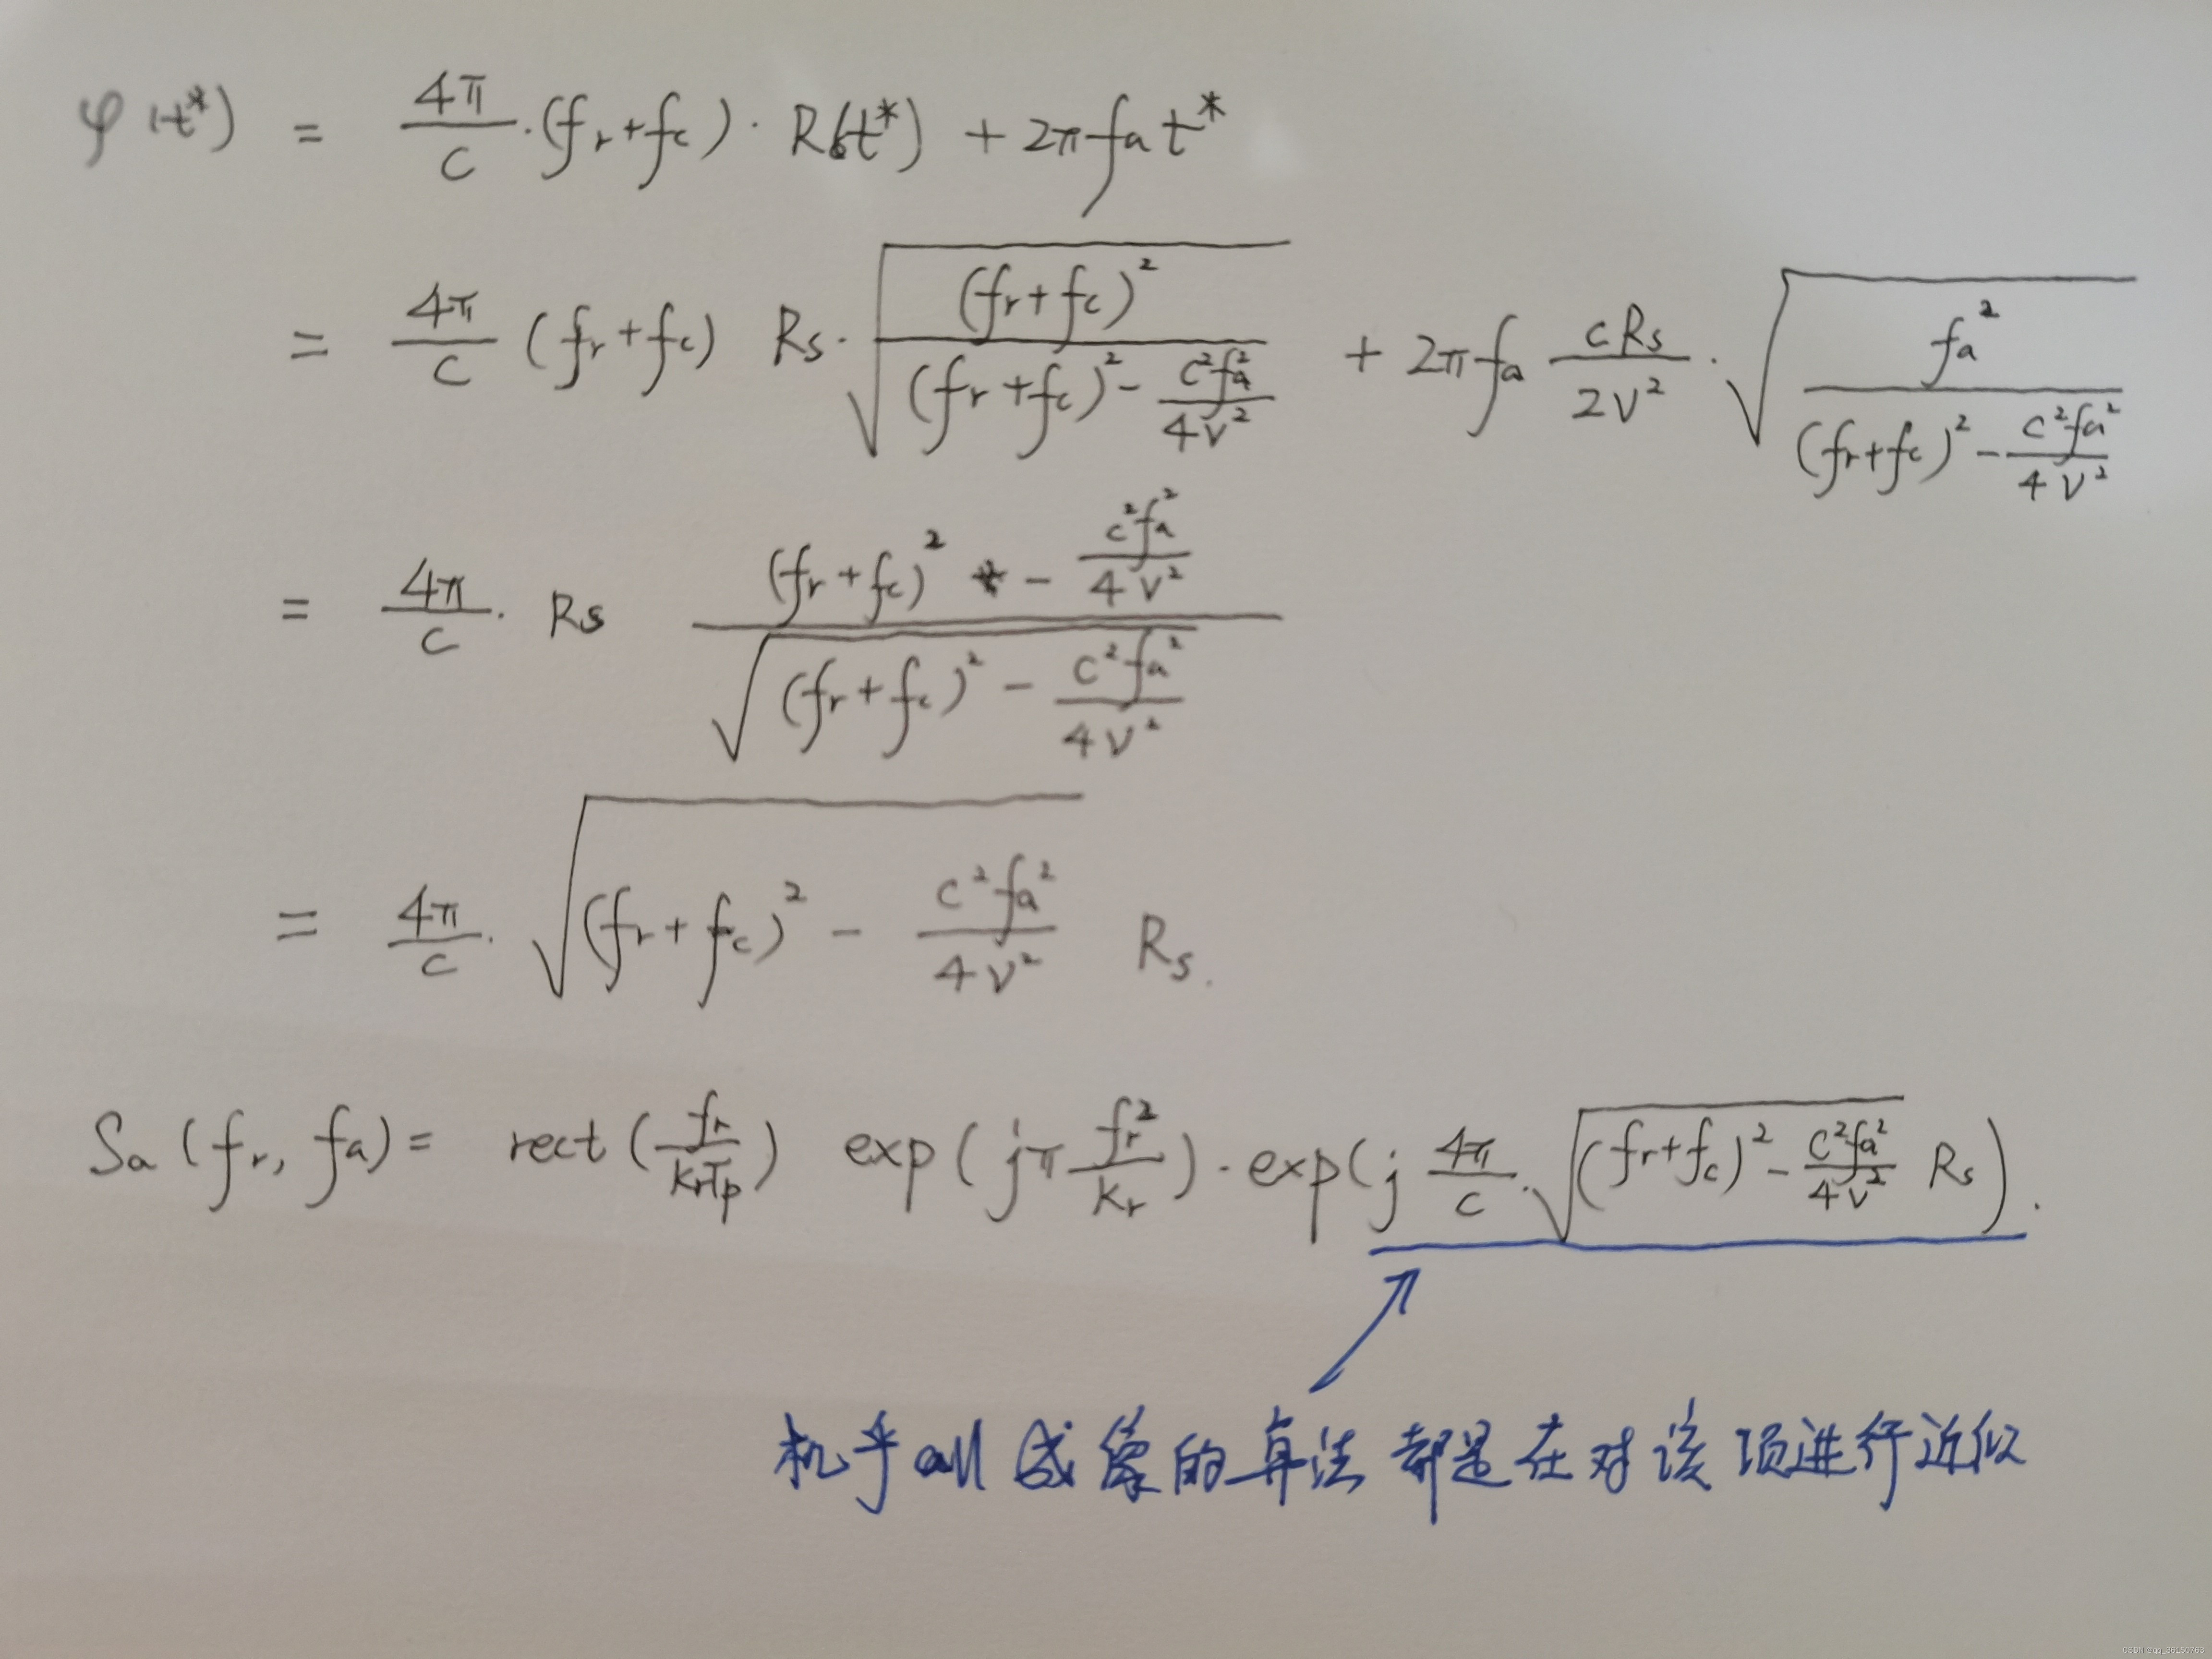 φ(t*) = \frac{4π}{c}·(f_r+f_c)·R(t*) + 2πf_a t*
= \frac{4π}{c} (f_r+f_c) R_s·\sqrt{\frac{(f_r+f_c)^2}{(f_r+f_c)^2-\frac{c^2f_a^2}{4v^2}}} + 2πf_a \frac{cR_s}{2v^2}·\sqrt{\frac{f_a^2}{(f_r+f_c)^2-\frac{c^2f_a^2}{4v^2}}}
= \frac{4π}{c}· R_s \frac{(f_r+f_c)^2 - \frac{c^2f_a^2}{4v^2}}{\sqrt{(f_r+f_c)^2-\frac{c^2f_a^2}{4v^2}}}
= \frac{4π}{c}·\sqrt{(f_r+f_c)^2 - \frac{c^2f_a^2}{4v^2}} R_s.
S_a(f_r, f_a) = rect(\frac{f_r}{k_rT_p}) exp(jπ\frac{f_r^2}{k_r})·exp(j\frac{4π}{c}·\sqrt{(f_r+f_c)^2-\frac{c^2f_a^2}{4v^2}} R_s).
机乎all成像的算法都是在对该项进行近似
CSDN @qq_36150763